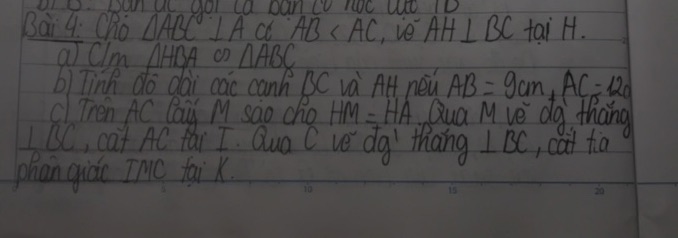 Bài 4: Cho ΔABC ⊥ A có AB < AC, vẽ AH ⊥ BC tại H.
a) C/m ΔHBA ∽ ΔABC
b) Tính độ dài các cạnh BC và AH nếu AB = 9cm, AC = 12c
c) Trên AC lấy M sao cho HM = HA. Qua M vẽ đg` thẳng
⊥ BC, cắt AC tại I. Qua C vẽ đg` thẳng ⊥ BC, cắt tia
phân giác IMC tại K.
10 15 20